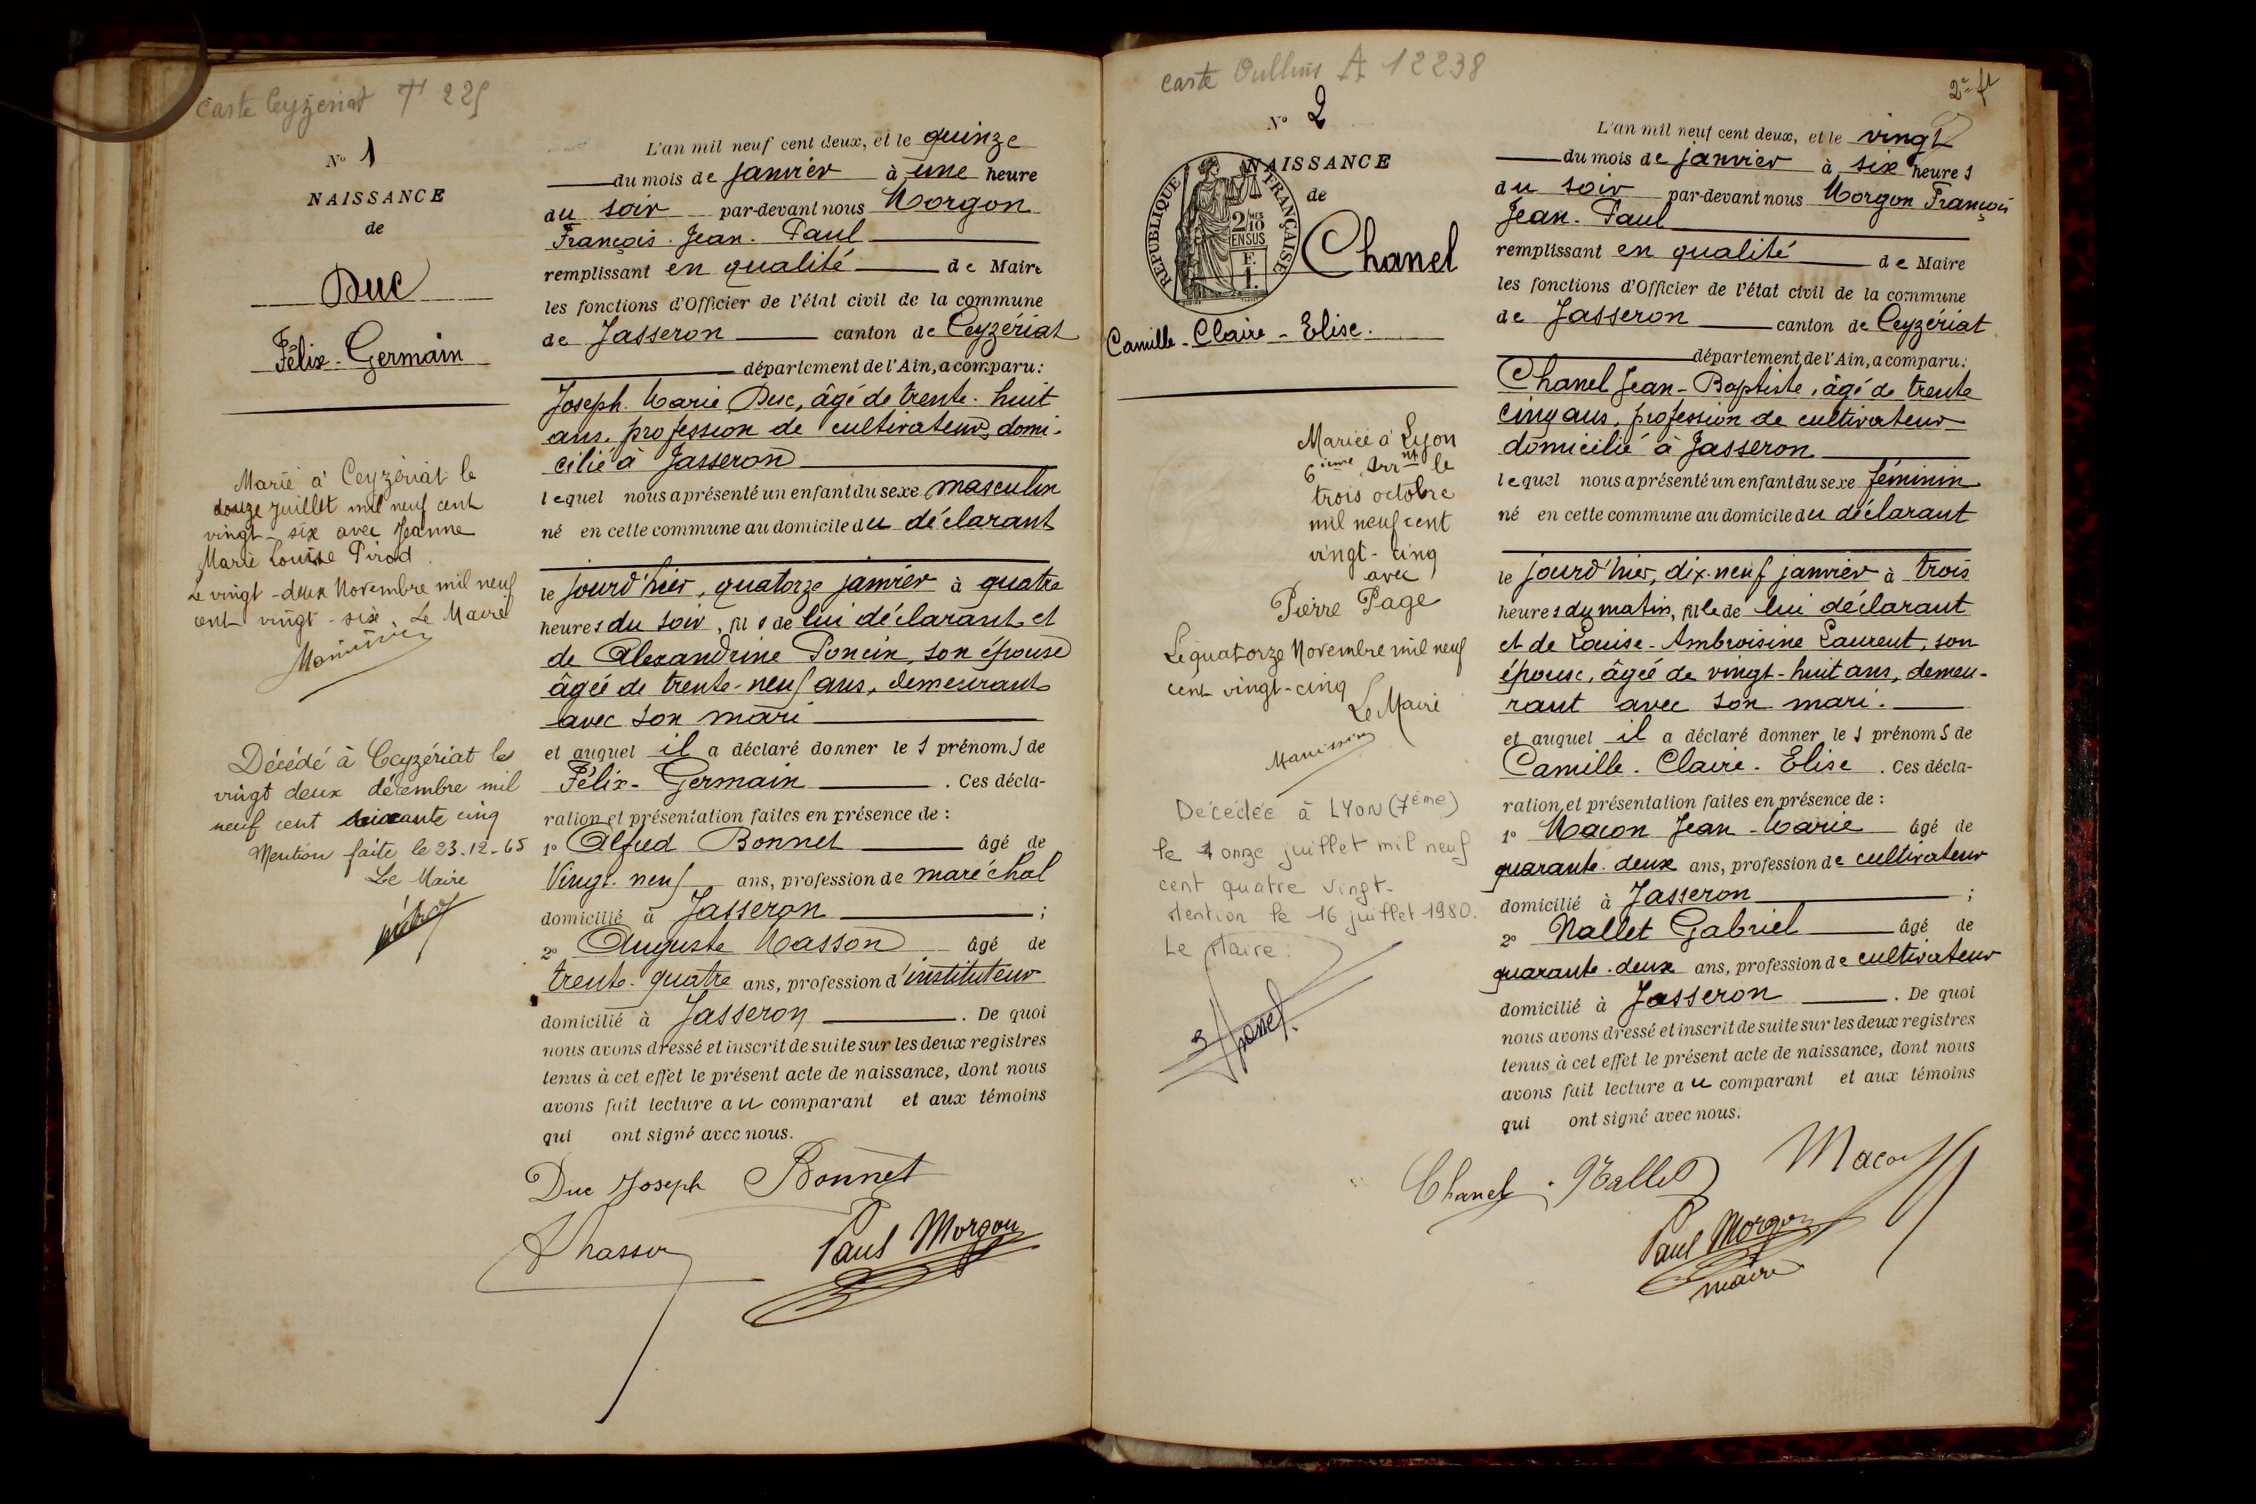 carte Ceyzeriat
N° 1
NAISSANCE
de
Duc
Félix-Germain
Marié à Ceyzériat le
douze juillet mil neuf cent
vingt-six avec Jeanne
Marie Louise Pirod
Le vingt-deux Novembre mil neuf
cent vingt-six. Le Maire
Décédé à Ceyzériat le
vingt deux décembre mil
neuf cent soixante cinq
Mention faite le 23-12-65
Le Maire
L'an mil neuf cent deux, et le quinze
du mois de janvier à une heure
du soir par-devant nous Morgon
François. Jean. Paul
remplissant en qualité de Maire
les fonctions d'Officier de l'état civil de la commune
de Jasseron canton de Ceyzériat
département de l'Ain, a comparu:
Joseph. Marie Duc, âgé de trente-huit
ans, profession de cultivateur, domi-
cilié à Jasseron
lequel nous a présenté un enfant du sexe masculin
né en cette commune au domicile du déclarant
le jourd'hier, quatorze janvier à quatre
heures du soir, fils de lui déclarant et
de Alexandrine Poncin, son épouse
âgée de trente-neuf ans, demeurant
avec son mari
et auquel il a déclaré donner les prénoms de
Félix-Germain. Ces décla-
ration et présentation faites en présence de:
1° Alfred Bonnet âgé de
Vingt-neuf ans, profession de maréchal
domicilié à Jasseron;
2° Auguste Masson âgé de
trente-quatre ans, profession d'instituteur
domicilié à Jasseron. De quoi
nous avons dressé et inscrit de suite sur les deux registres
tenus à cet effet le présent acte de naissance, dont nous
avons fait lecture au comparant et aux témoins
qui ont signé avec nous.
Duc Joseph Bonnet
Masson Paul Morgon
carte Oullins A 12238
N° 2
NAISSANCE
de
RÉPUBLIQUE FRANÇAISE
2/10 MES
EN SUS
F.
1.
Chanel
Camille-Claire-Elise.
Mariée à Lyon
6ième Arrnt le
trois octobre
mil neuf cent
vingt-cinq
avec
Pierre Page
Le quatorze Novembre mil neuf
cent vingt-cinq
Le Maire
Décédée à LYON (7ème)
le onze juillet mil neuf
cent quatre vingt-
Mention le 16 juillet 1980.
Le Maire:
2e ft
L'an mil neuf cent deux, et le vingt
du mois de janvier à six heures
du soir par-devant nous Morgon François
Jean. Paul
remplissant en qualité de Maire
les fonctions d'Officier de l'état civil de la commune
de Jasseron canton de Ceyzériat
département de l'Ain, a comparu:
Chanel Jean-Baptiste, âgé de trente
cinq ans, profession de cultivateur
domicilié à Jasseron
lequel nous a présenté un enfant du sexe féminin
né en cette commune au domicile du déclarant
le jourd'hier, dix-neuf janvier à trois
heures du matin, fille de lui déclarant
et de Louise-Ambroisine Laurent, son
épouse, âgée de vingt-huit ans, demeu-
rant avec son mari.
et auquel il a déclaré donner les prénoms de
Camille-Claire-Elise. Ces décla-
ration et présentation faites en présence de:
1° Macon Jean-Marie âgé de
quarante-deux ans, profession de cultivateur
domicilié à Jasseron;
2° Nallet Gabriel âgé de
quarante-deux ans, profession de cultivateur
domicilié à Jasseron. De quoi
nous avons dressé et inscrit de suite sur les deux registres
tenus à cet effet le présent acte de naissance, dont nous
avons fait lecture au comparant et aux témoins
qui ont signé avec nous.
Chanel. Nallet Macon
Paul Morgon
maire